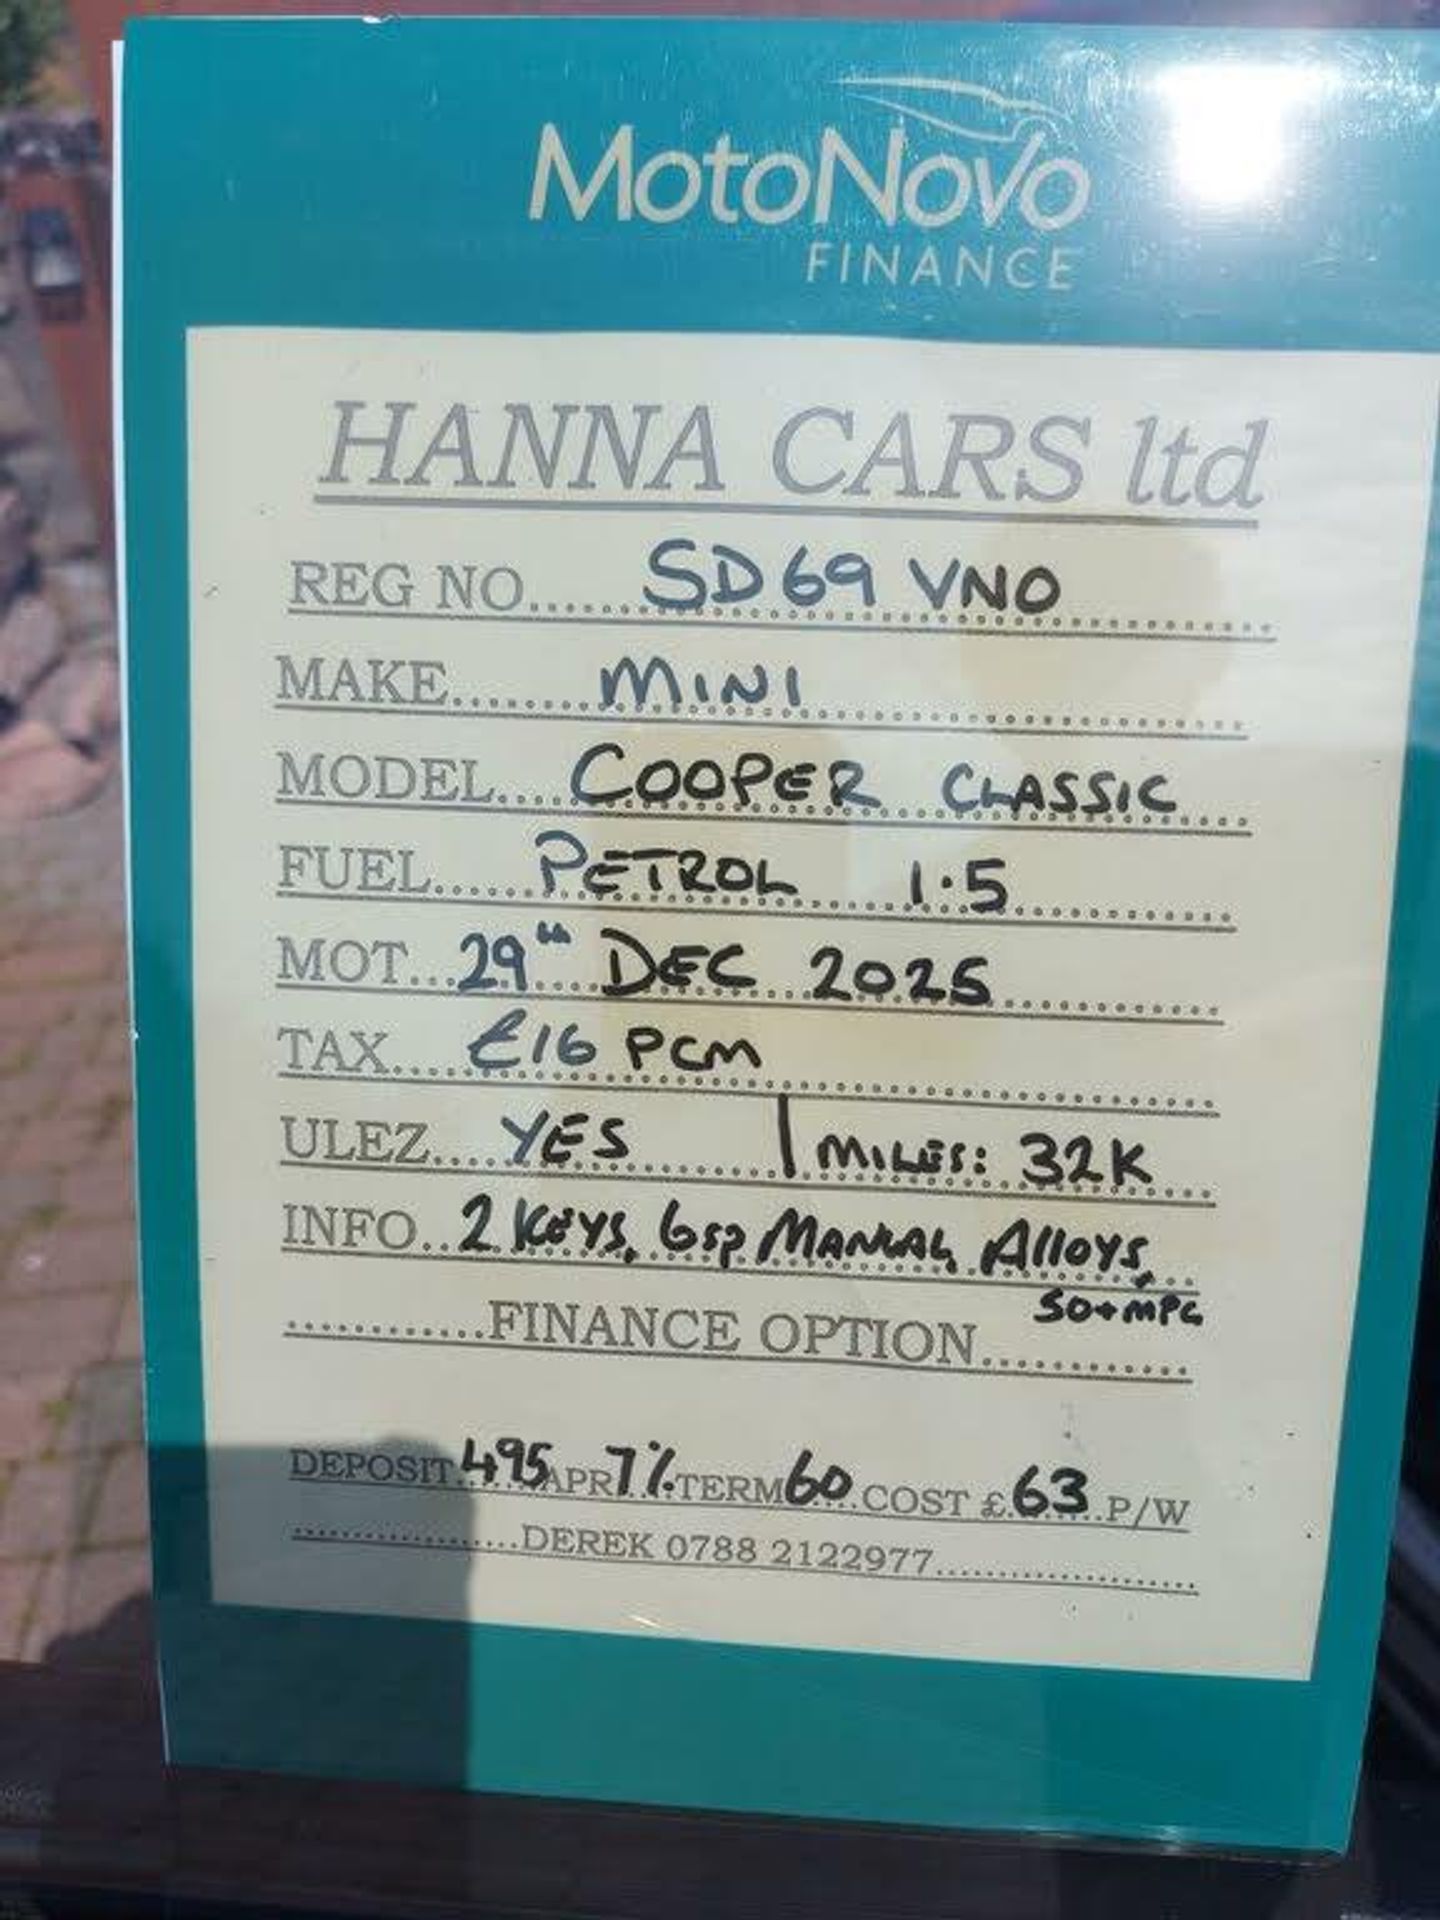 MotoNovo
FINANCE
HANNA CARS ltd
REG NO........SD69 VNO........
MAKE........MINI........
MODEL....COOPER CLASSIC....
FUEL......PETROL 1.5........
MOT...29th DEC 2025........
TAX....£16 PCM........
ULEZ....YES | MILES: 32K....
INFO..2 KEYS, 6sp MANUAL, Alloys,
50+MPG
............FINANCE OPTION............
DEPOSIT.495 APR 7%.TERM 60...COST £.63..P/W
............DEREK 0788 2122977............